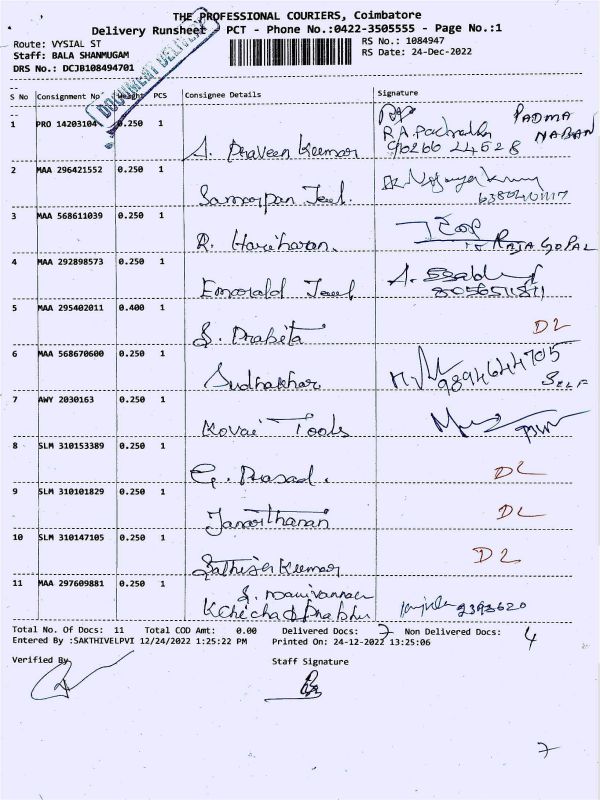 THE PROFESSIONAL COURIERS, Coimbatore
Delivery Runsheet PCT - Phone No.:0422-3505555 - Page No.:1
Route: VYSIAL ST
RS No.: 1084947
Staff: BALA SHANMUGAM
RS Date: 24-Dec-2022
DRS No.: DCJB108494701
DOCUMENT DELIVERY
S No Consignment No Weight PCS Consignee Details Signature
1 PRO 14203104 0.250 1 A. Praveen Kumar R.A. PADMA NABAN
2 MAA 296421552 0.250 1 Samarpan Jewel.
3 MAA 568611039 0.250 1 R. Hariharan. RAJA GOPAL
4 MAA 292898573 0.250 1 Emerald Jewel
5 MAA 295402011 0.400 1 S. Prabita D2
6 MAA 568670600 0.250 1 Sudhakhar 9894644705 SELF
7 AWY 2030163 0.250 1 Kovai Tools
8 SLM 310153389 0.250 1 G. Prasad. D2
9 SLM 310101829 0.250 1 Janarthanan D2
10 SLM 310147105 0.250 1 Sathish Kumar D2
11 MAA 297609881 0.250 1 S. Manivannan
Total No. Of Docs: 11 Total COD Amt: 0.00 Delivered Docs: 7 Non Delivered Docs: 4
Entered By :SAKTHIVELPVI 12/24/2022 1:25:22 PM Printed On: 24-12-2022 13:25:06
Verified By
Staff Signature
7